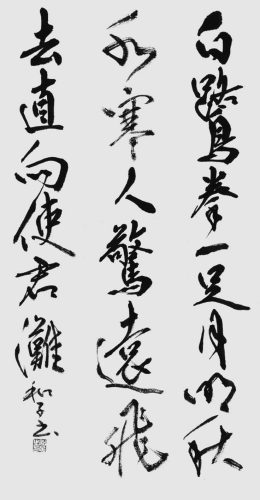 白鷺拳一足月明秋
水寒人驚遠飛
去直向使君灘
和子书